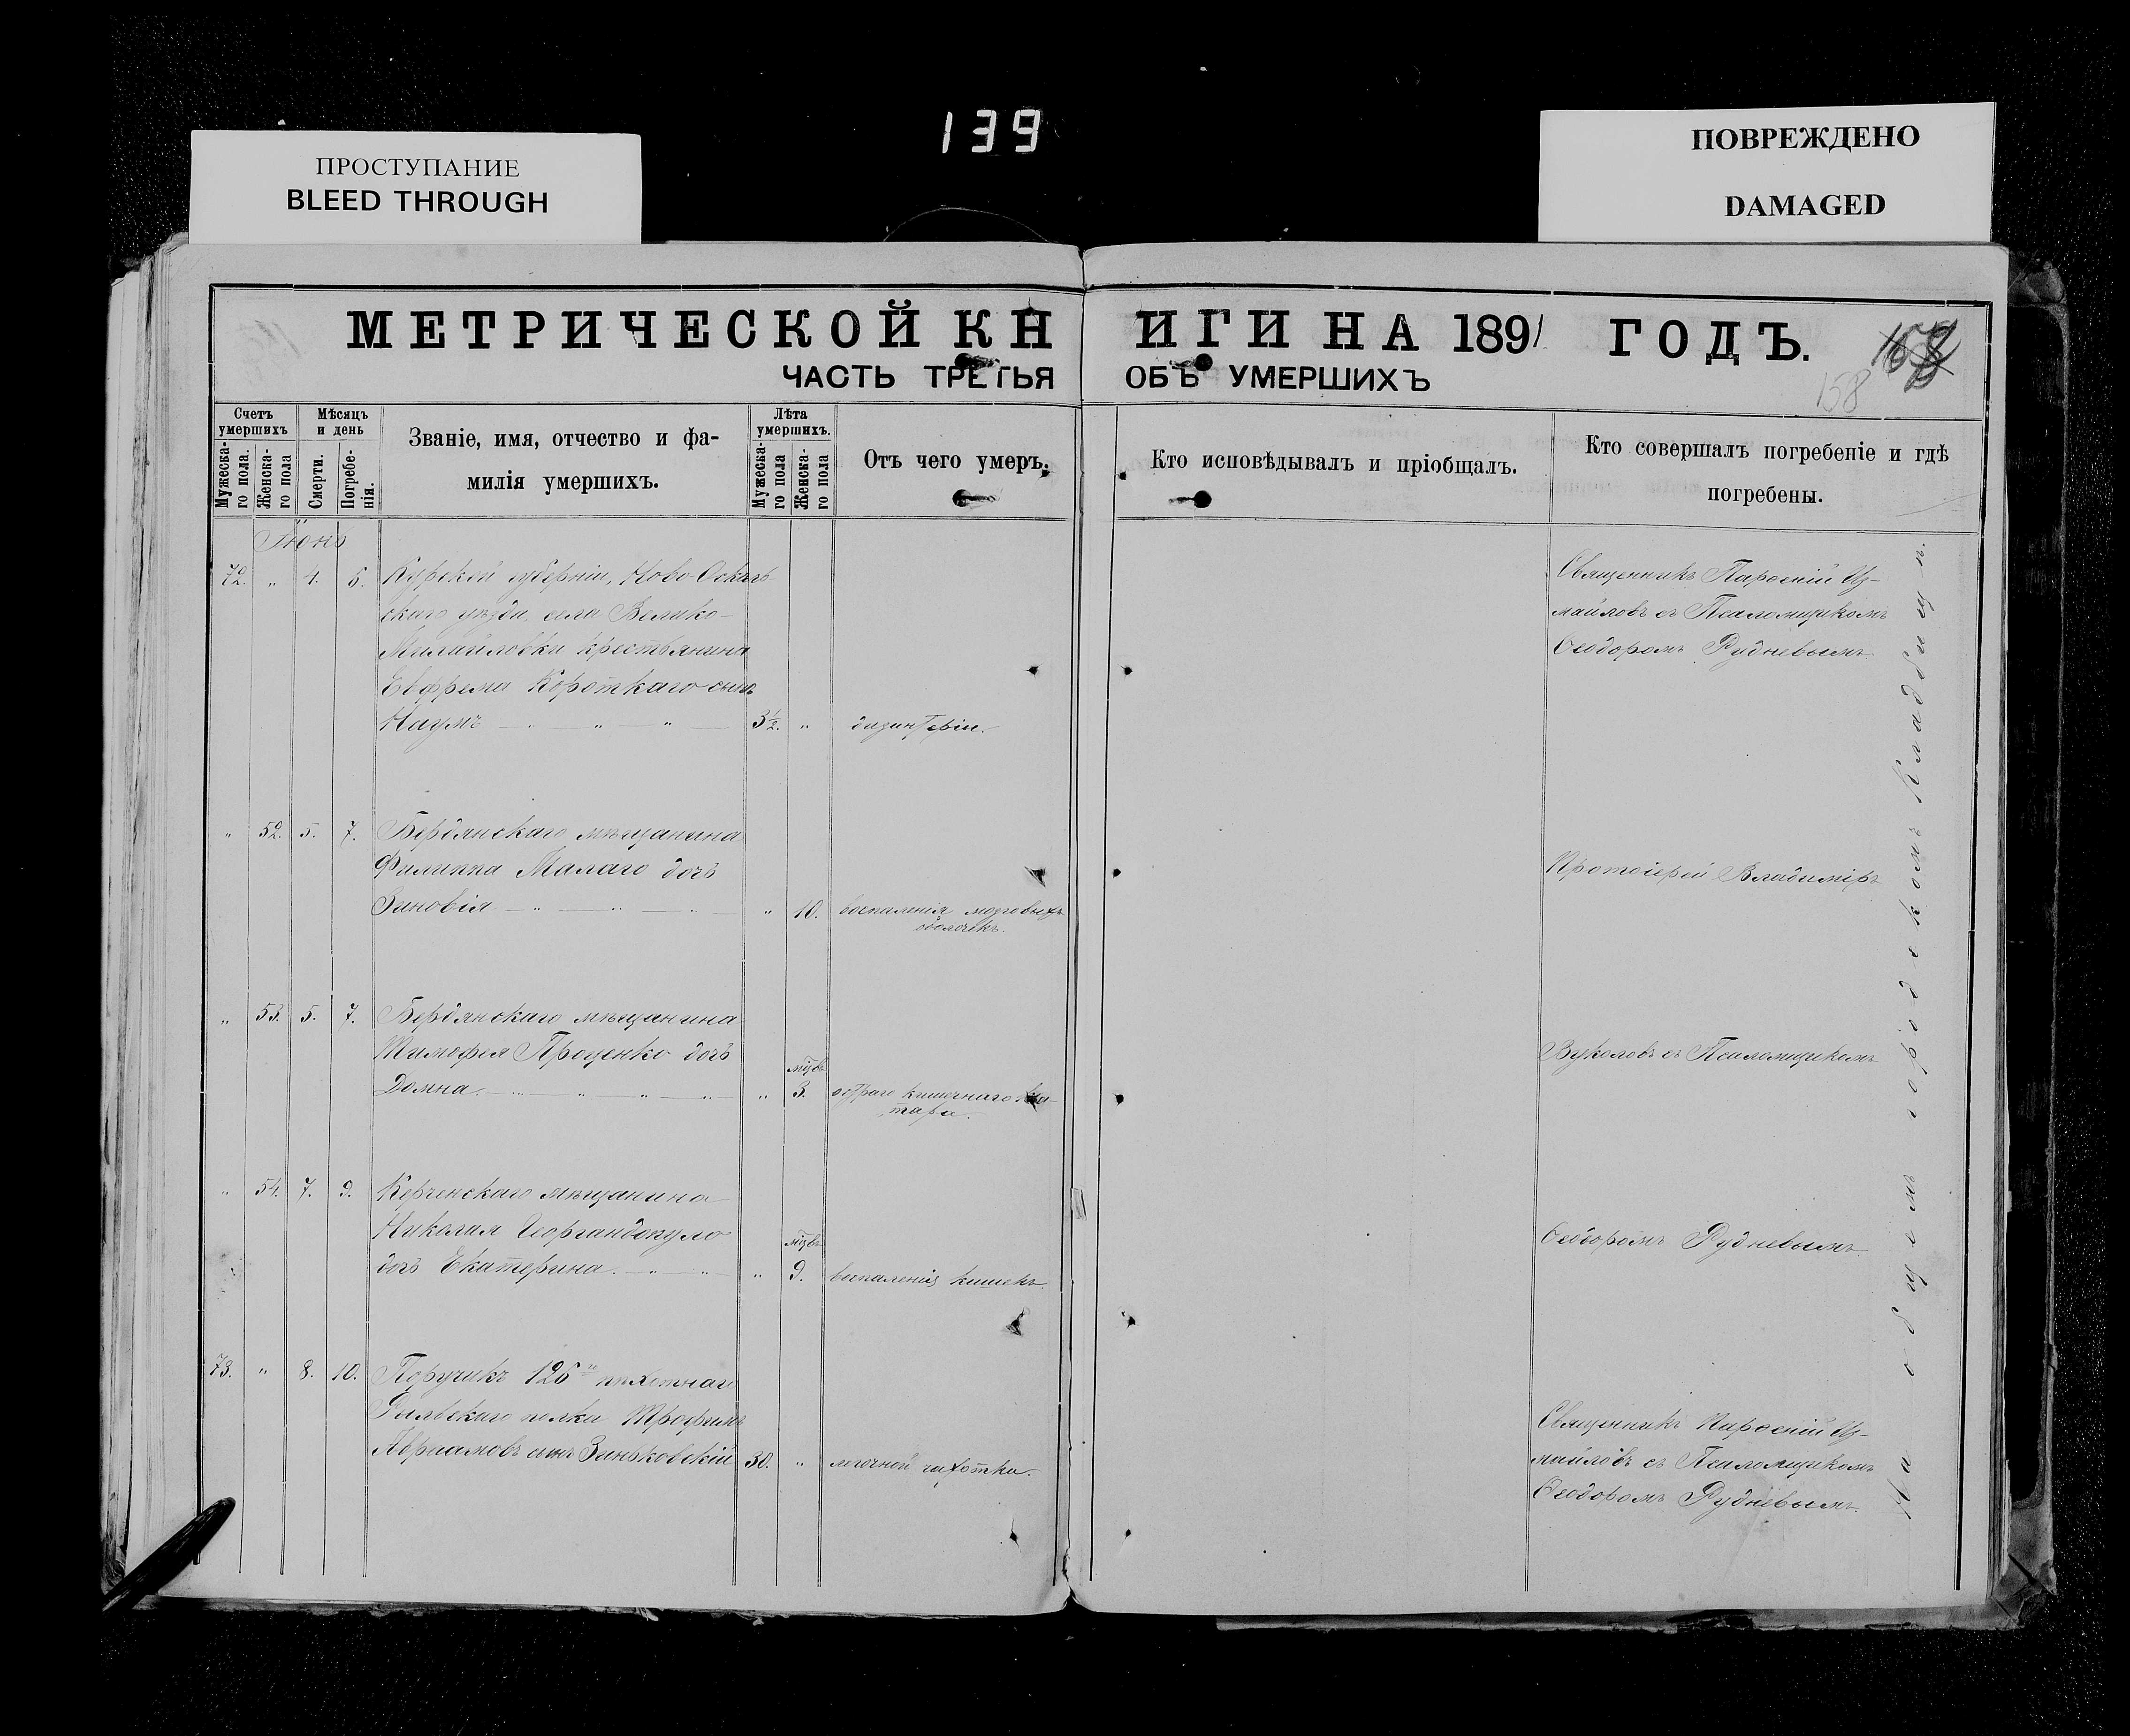 139
ПРОСТУПАНИЕ
BLEED THROUGH
ПОВРЕЖДЕНО
DAMAGED
МЕТРИЧЕСКОЙ КНИГИ НА 1891 ГОДЪ.
158
ЧАСТЬ ТРЕТЬЯ ОБЪ УМЕРШИХЪ
Счетъ умершихъ
Мужеска-го пола.
Женска-го пола
Мѣсяцъ и день
Смерти.
Погребе-нія.
Званіе, имя, отчество и фа-
милія умершихъ.
Лѣта умершихъ.
Мужеска-го пола
Женска-го пола
Отъ чего умеръ.
Кто исповѣдывалъ и пріобщалъ.
Кто совершалъ погребеніе и гдѣ
погребены.
Іюнь
72. " 4. 5. Курской губерніи, Ново-Осколь-
скаго уѣзда, села Велико-
Михайловки крестьянина
Евфрема Короткаго сынъ
Наумъ 3½. " дизинтеріи.
Священникъ Парѳеній Из-
майловъ съ Псаломщикомъ
Ѳеодоромъ Рудневымъ
" 52. 5. 7. Бердянскаго мѣщанина
Филиппа Малаго дочь
Зиновія " 10. воспаленія мозговыхъ
оболочекъ.
Протоіерей Владиміръ
" 53. 5. 7. Бердянскаго мѣщанина
Тимофея Проценко дочь
Домна " 3. мѣсв. остраго кишечнаго ка-
тара.
Вуколовъ съ Псаломщикомъ
" 54. 7. 9. Керченскаго мѣщанина
Николая Георгандопуло
дочь Екатерина " 9. мѣсв. воспаленія кишекъ.
Ѳеодоромъ Рудневымъ
73. " 8. 10. Поручикъ 126го пѣхотнаго
Рыльскаго полка Трофимъ
Авраамовъ сынъ Зиньковскій 30. " легочной чахотки.
Священникъ Парѳеній Из-
майловъ съ Псаломщикомъ
Ѳеодоромъ Рудневымъ.
На общемъ городскомъ кладбищѣ.